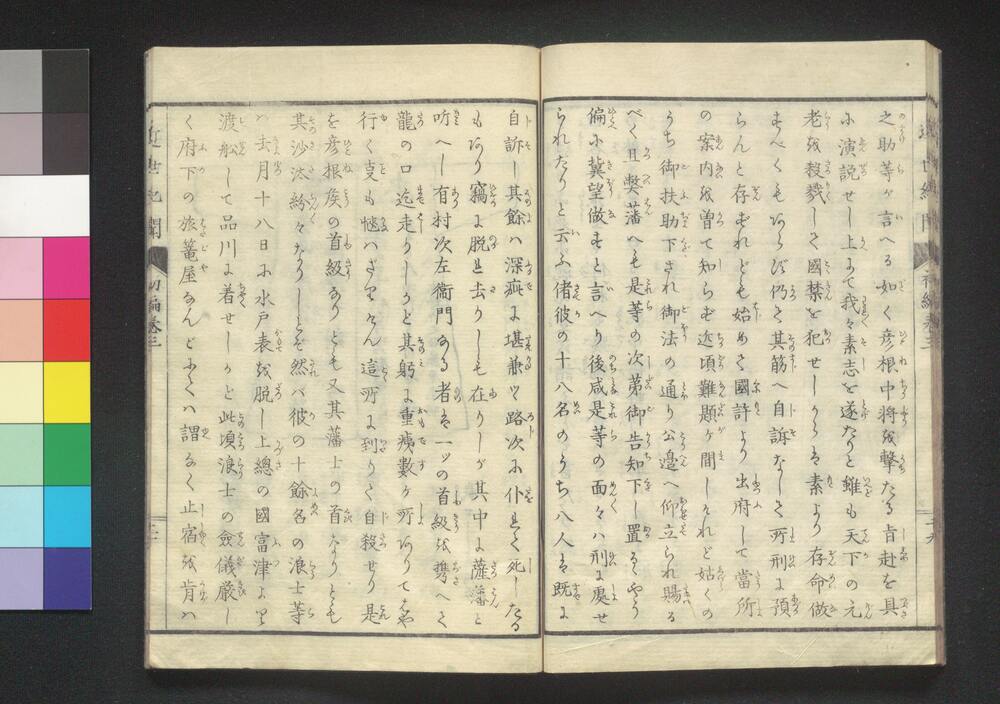 之助等が言へる如く彦根中将を撃たる旨赴を具
に演説せし上にて我々素志を遂たりと雖も天下の元
老を殺戮しさ國禁を犯せしからは素より存命做
すべくもあらび仍て其筋へ自訴なして所刑に預
らんと存ずれども始めて國許より出府して當所
の案内を曽て知らず迩頃難題ヶ間しけれど姑くの
うち御扶助下され御法の通り公邉へ仰立られ賜る
べく且弊藩へも是等の次第御告知下し置るやう
偏に冀望做すと言へり後咸是等の面々ハ刑に處せ
られたりと云ふ偖彼の十八名のうち八人は既に
自訴し其餘ハ深痍に堪兼ツ路次に仆れて死したる
もあり竊に脱れ去りしも在りしが其中に薩藩と
听へし有村次左衞門なる者は一ッの首級を携へて
龍の口迄走りしかど其躬に重痍數ヶ所ありてはや
行く叓も愜ハざりけん這所に到りて自殺せり是
を彦根矦の首級なりとも又其藩士の首なりとも
其沙汰紛々なりしとぞ然バ彼の十余名の浪士等
ハ去月十八日に水戸表を脱し上總の國富津より
渡舩して品川に着せしかど此頃浪士の僉儀嚴し
く府下の旅篭屋なんどにてハ謂なく止宿を肯ハ
近世紀聞
初編巻三